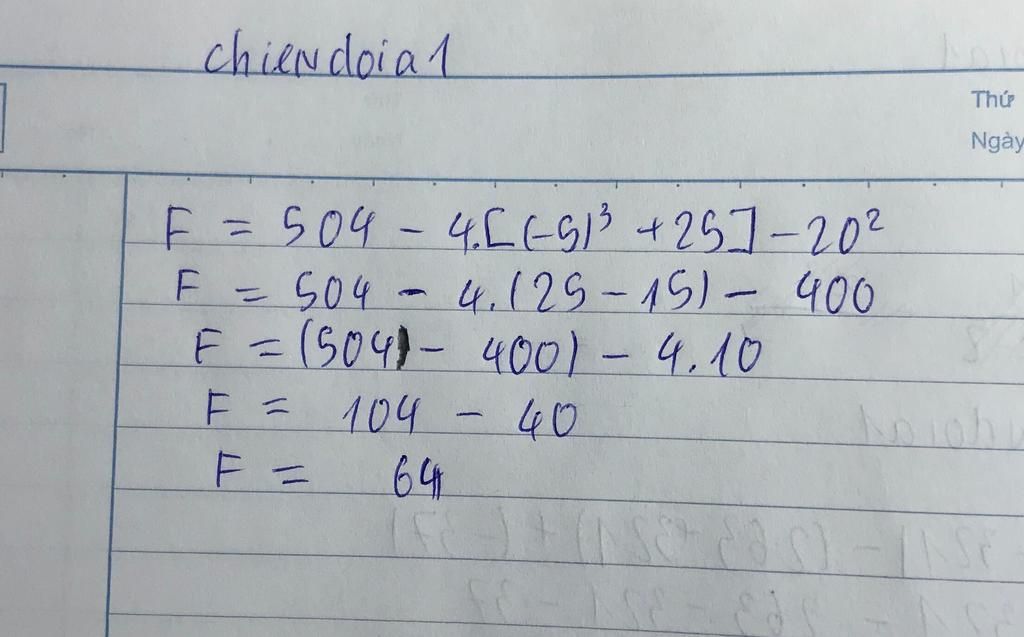 chiendoia1
Thứ
Ngày
F = 504 - 4.[(-5)³ + 25] - 20²
F = 504 - 4.(25 - 15) - 400
F = (504) - 400) - 4.10
F = 104 - 40
F = 64